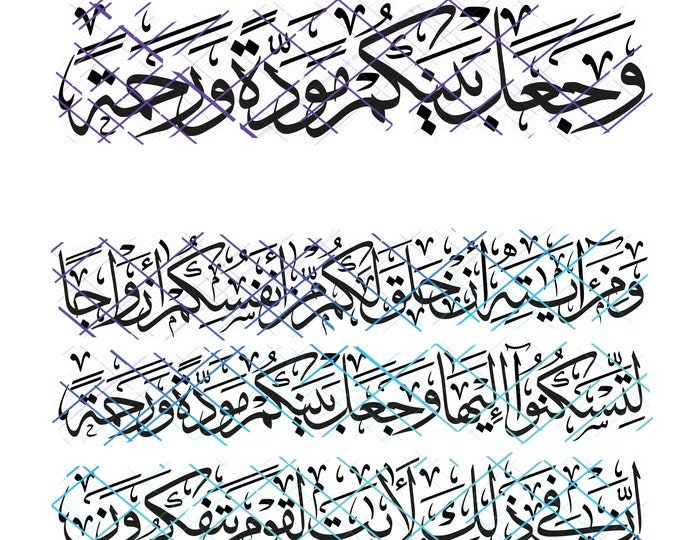 وَجَعَلَ بَيْنَكُمْ مَوَدَّةً وَرَحْمَةً
وَمِنْ آيَاتِهِ أَنْ خَلَقَ لَكُمْ مِنْ أَنْفُسِكُمْ أَزْوَاجًا
لِتَسْكُنُوا إِلَيْهَا وَجَعَلَ بَيْنَكُمْ مَوَدَّةً وَرَحْمَةً
إِنَّ فِي ذَلِكَ لَآيَاتٍ لِقَوْمٍ يَتَفَكَّرُونَ